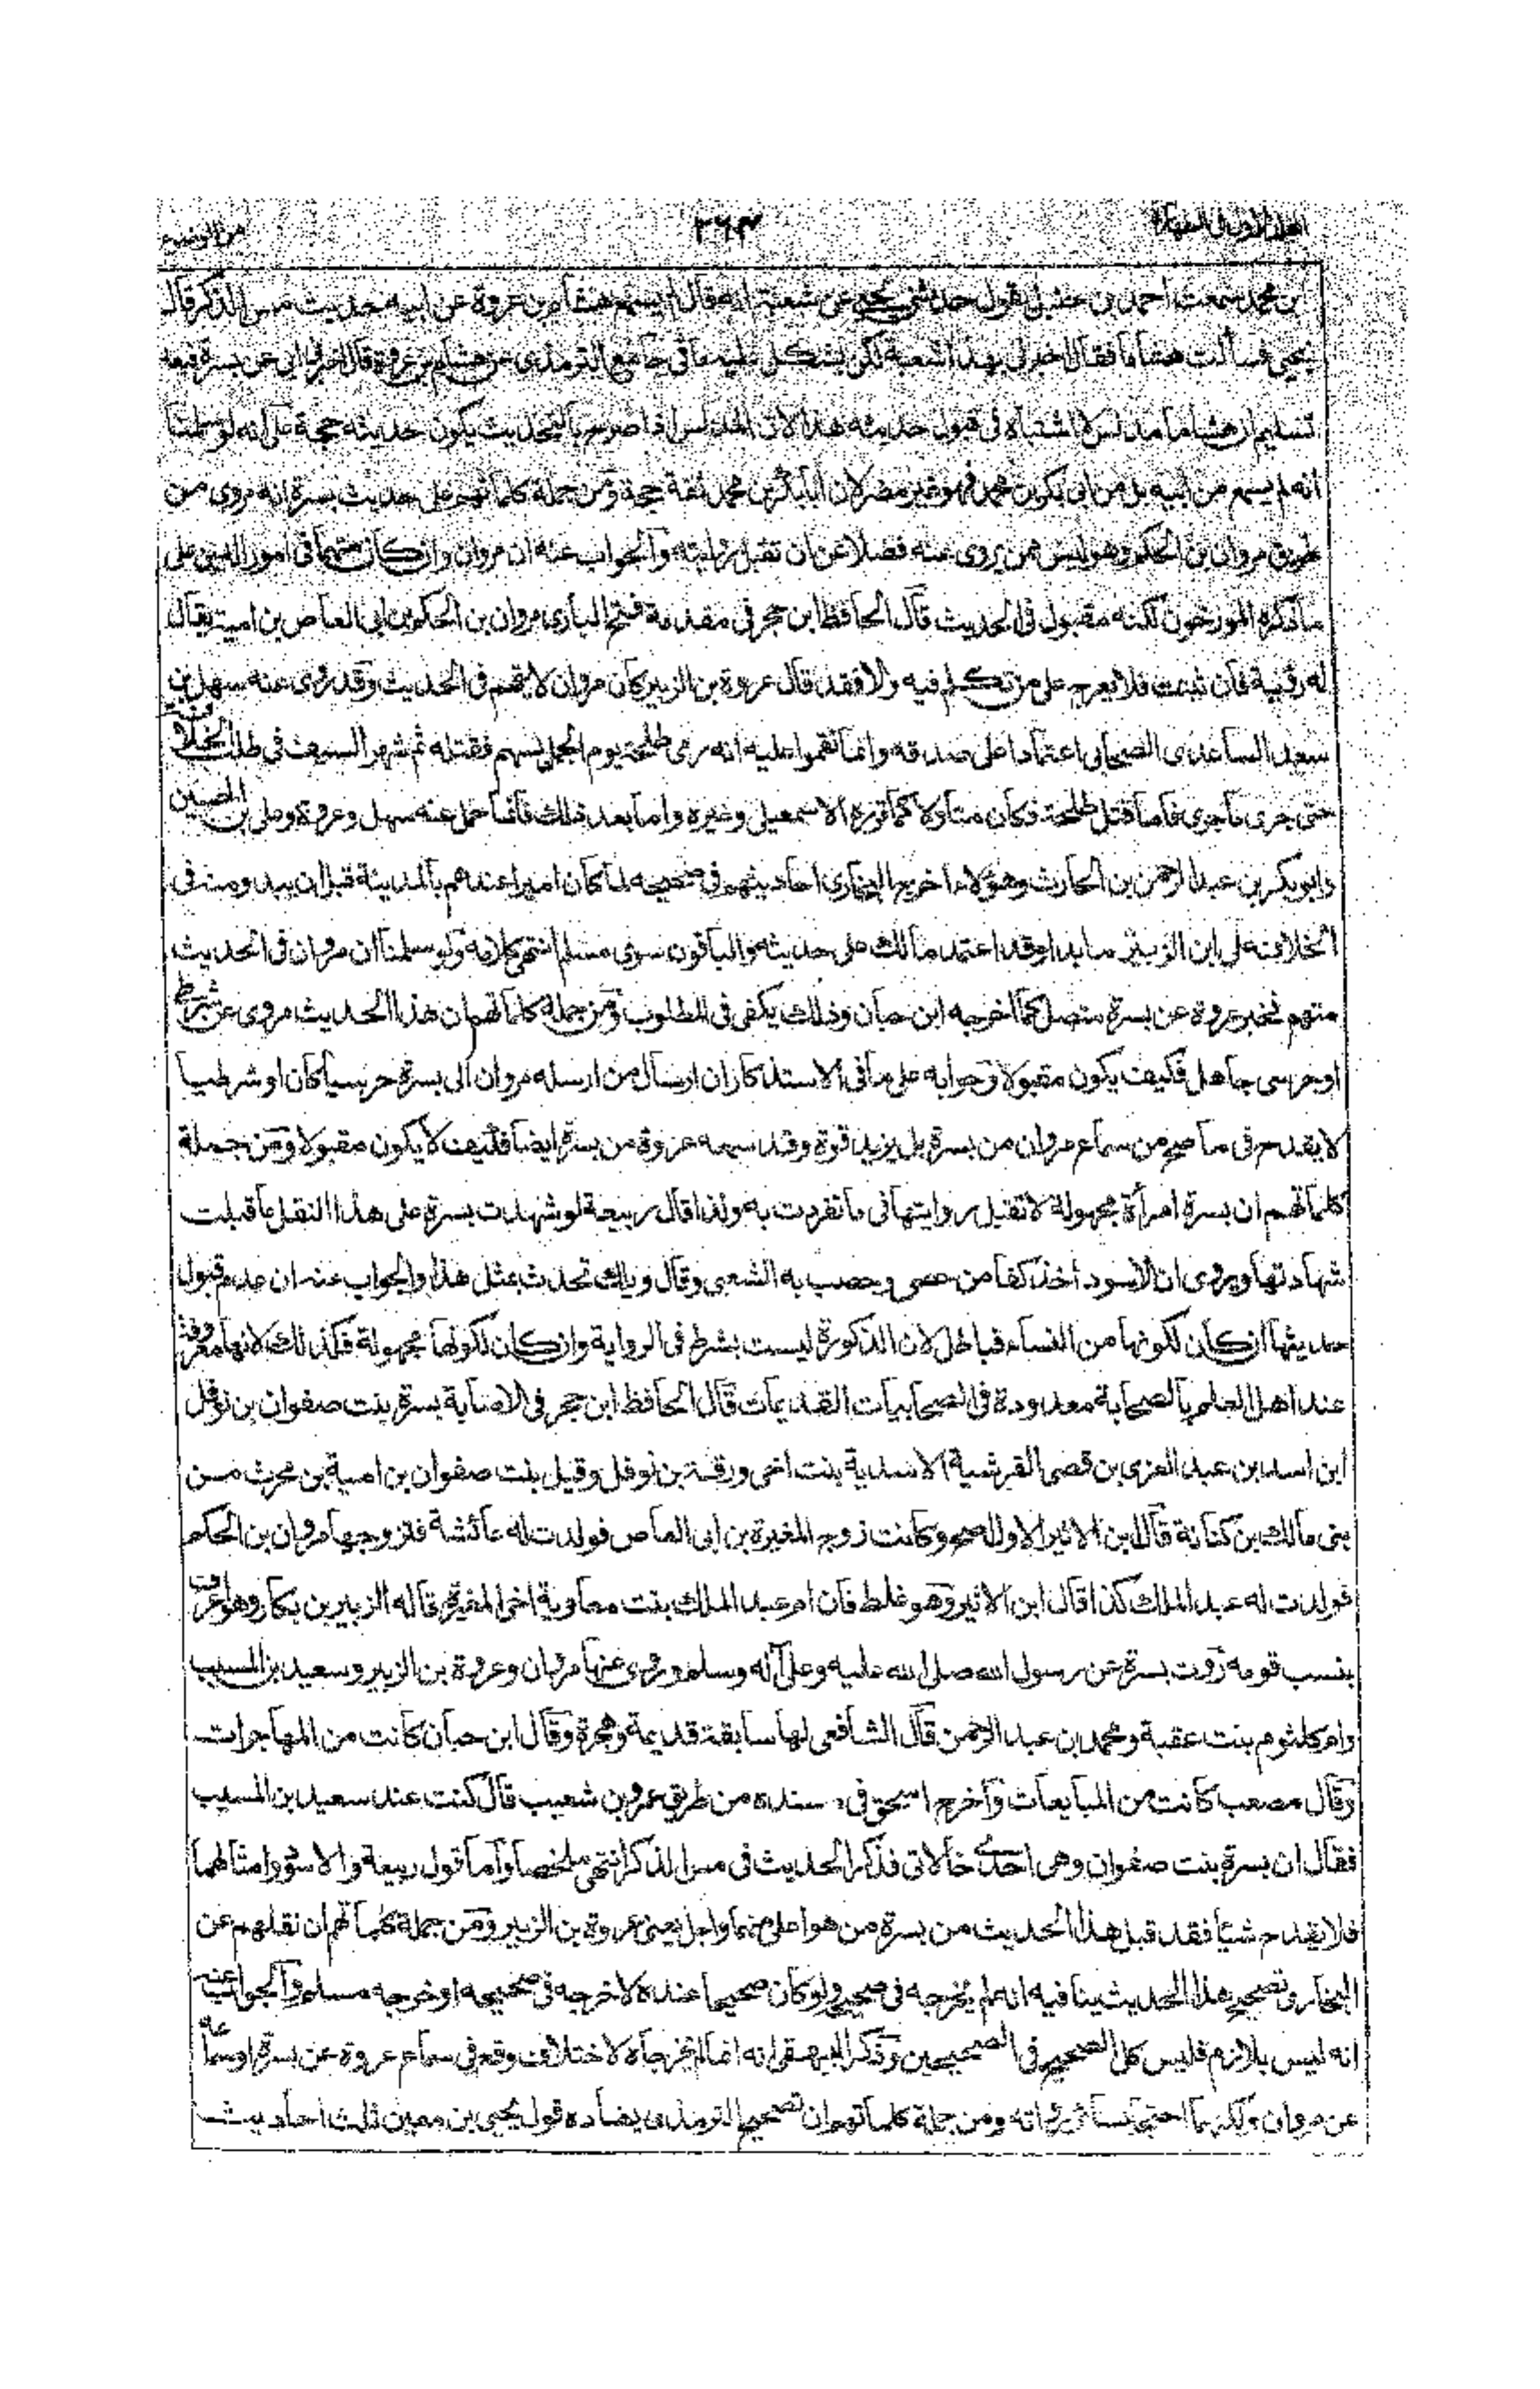 ٢٦٣
بن محمد سمعت احمد بن حنبل يقول حدثني يحيى عن شعبة انه قال لم يسمع هشام بن عروة عن ابيه حديث مس الذكر قال
يحيى فسألت هشاما فقال اخبرني بهذا شعبة لكن يشكل عليه ما في جامع الترمذي عن هشام بن عروة قال اخبرني ابي عن بسرة فبعد
تسليم ان هشاما مدلس لا اشتباه في قبول حديثه هذا لان المدلس اذا صرح بالتحديث يكون حديثه حجة على انه لو سلمنا
انه لم يسمع من ابيه بل من ابي بكر بن محمد فهو غير مضر لان ابابكر بن محمد ثقة حجة ومن جملة كلماتهم على حديث بسرة انه مروى من
طريق مروان بن الحكم وهو ليس ممن يروى عنه فضلا عن ان تقبل روايته والجواب عنه ان مروان وان كان متهما في امور الدين على
ما ذكره المورخون لكنه مقبول في الحديث قال الحافظ ابن حجر في مقدمة فتح الباري مروان بن الحكم بن ابي العاص بن امية يقال
له رؤية فان ثبتت فلا يعرج على من تكلم فيه والا فقد قال عروة بن الزبير كان مروان لا يتهم في الحديث وقد روى عنه سهل بن
سعد الساعدى الصحابي اعتمادا على صدقه وانما نقموا عليه انه رمى طلحة يوم الجمل بسهم فقتله ثم شهر السيف في طلب الخلافة
حتى جرى ما جرى فاما قتل طلحة فكان متأولا كما قرره الاسمعيلي وغيره واما بعد ذلك فانما حمل عنه سهل وعروة وعلى بن الحسين
وابو بكر بن عبد الرحمن بن الحارث وهؤلاء اخرج البخارى احاديثهم في صحيحه لما كان اميرا عندهم بالمدينة قبل ان يبدو منه في
الخلافة على ابن الزبير ما بدا وقد اعتمد مالك على حديثه والباقون سوى مسلم انتهى كلامه ولو سلمنا ان مروان في الحديث
متهم فخبر عروة عن بسرة متصل كما اخرجه ابن حبان وذلك يكفى في المطلوب ومن جملة كلماتهم ان هذا الحديث مروى عن شرطي
او حرسى جاهل فكيف يكون مقبولا وجوابه على ما في الاستذكار ان ارسال من ارسله مروان الى بسرة حرسيا كان او شرطيا
لا يقدح في ما صح من سماع مروان من بسرة بل يزيد قوة وقد سمعه عروة من بسرة ايضا فكيف لا يكون مقبولا ومن جملة
كلماتهم ان بسرة امرأة مجهولة لا تقبل روايتها في ما تفردت به ولذا قال ربيعة لو شهدت بسرة على هذا النقل ما قبلت
شهادتها ويروى ان الاسود أخذ كفا من حصى وحصب به الشعبي وقال ويلك تحدث بمثل هذا والجواب عنه ان عدم قبول
حديثها ان كان لكونها من النساء فباطل لان الذكورة ليست بشرط في الرواية وان كان لكونها مجهولة فكذلك لانها معروفة
عند اهل العلم بالصحابة معدودة في الصحابيات القديمات قال الحافظ ابن حجر في الاصابة بسرة بنت صفوان بن نوفل
ابن اسد بن عبد العزى بن قصى القرشية الاسدية بنت اخى ورقة بن نوفل وقيل بنت صفوان بن امية بن محرث من
بنى مالك بن كنانة قال ابن الاثير الاول اصح وكانت زوج المغيرة بن ابى العاص فولدت له عائشة فتزوجها مروان بن الحكم
فولدت له عبد الملك كذا قال ابن الاثير وهو غلط فان ام عبد الملك بنت معاوية اخى المغيرة قاله الزبير بن بكار وهو اعرف
بنسب قومه روت بسرة عن رسول الله صلى الله عليه وعلى آله وسلم وروى عنها مروان وعروة بن الزبير وسعيد بن المسيب
وام كلثوم بنت عقبة ومحمد بن عبد الرحمن قال الشافعى لها سابقة قديمة وهجرة وقال ابن حبان كانت من المهاجرات
وقال مصعب كانت من المبايعات وأخرج اسحق في مسنده من طريق عمرو بن شعيب قال كنت عند سعيد بن المسيب
فقال ان بسرة بنت صفوان وهى احدى خالاتى فذكر الحديث في مس الذكر انتهى ملخصا وأما قول ربيعة والاسود وامثالهما
فلا يقدح شيئا فقد قبل هذا الحديث من بسرة من هو اعلى منهما واجل يعنى عروة بن الزبير ومن جملة كلماتهم ان نقلهم عن
البخارى تصحيح هذا الحديث ينافيه انه لم يخرجه في صحيحه ولو كان صحيحا عنده لاخرجه في صحيحه او خرجه مسلم والجواب عنه
انه ليس بلازم فليس كل الصحيح في الصحيحين وذكر البيهقى انه انما لم يخرجاه لاختلاف وقع في سماع عروة عن بسرة او سماعه
عن مروان ولكنهما احتجا بسائر رواته ومن جملة كلماتهم ان تصحيح الترمذى يضاده قول يحيى بن معين ثلث احاديث